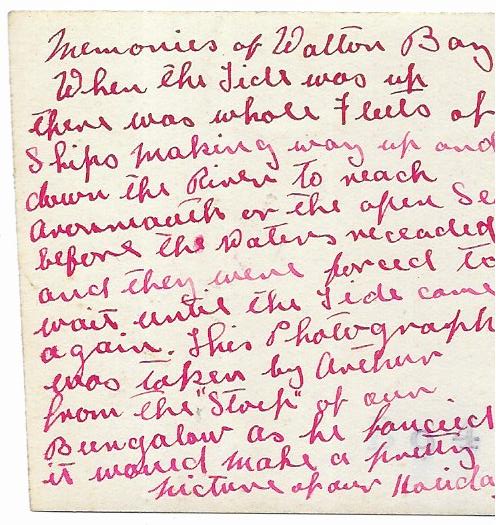 Memories of Walton Bay
When the Tide was up
there was whole Fleets of
Ships making way up and
down the River to reach
Avonmouth or the open Se
before the Waters receaded
and they were forced to
wait until the Tide came
again. This Photograph
was taken by Arthur
from the "Stoep" of our
Bungalow as he fancied
it would make a pretty
picture of our Holida